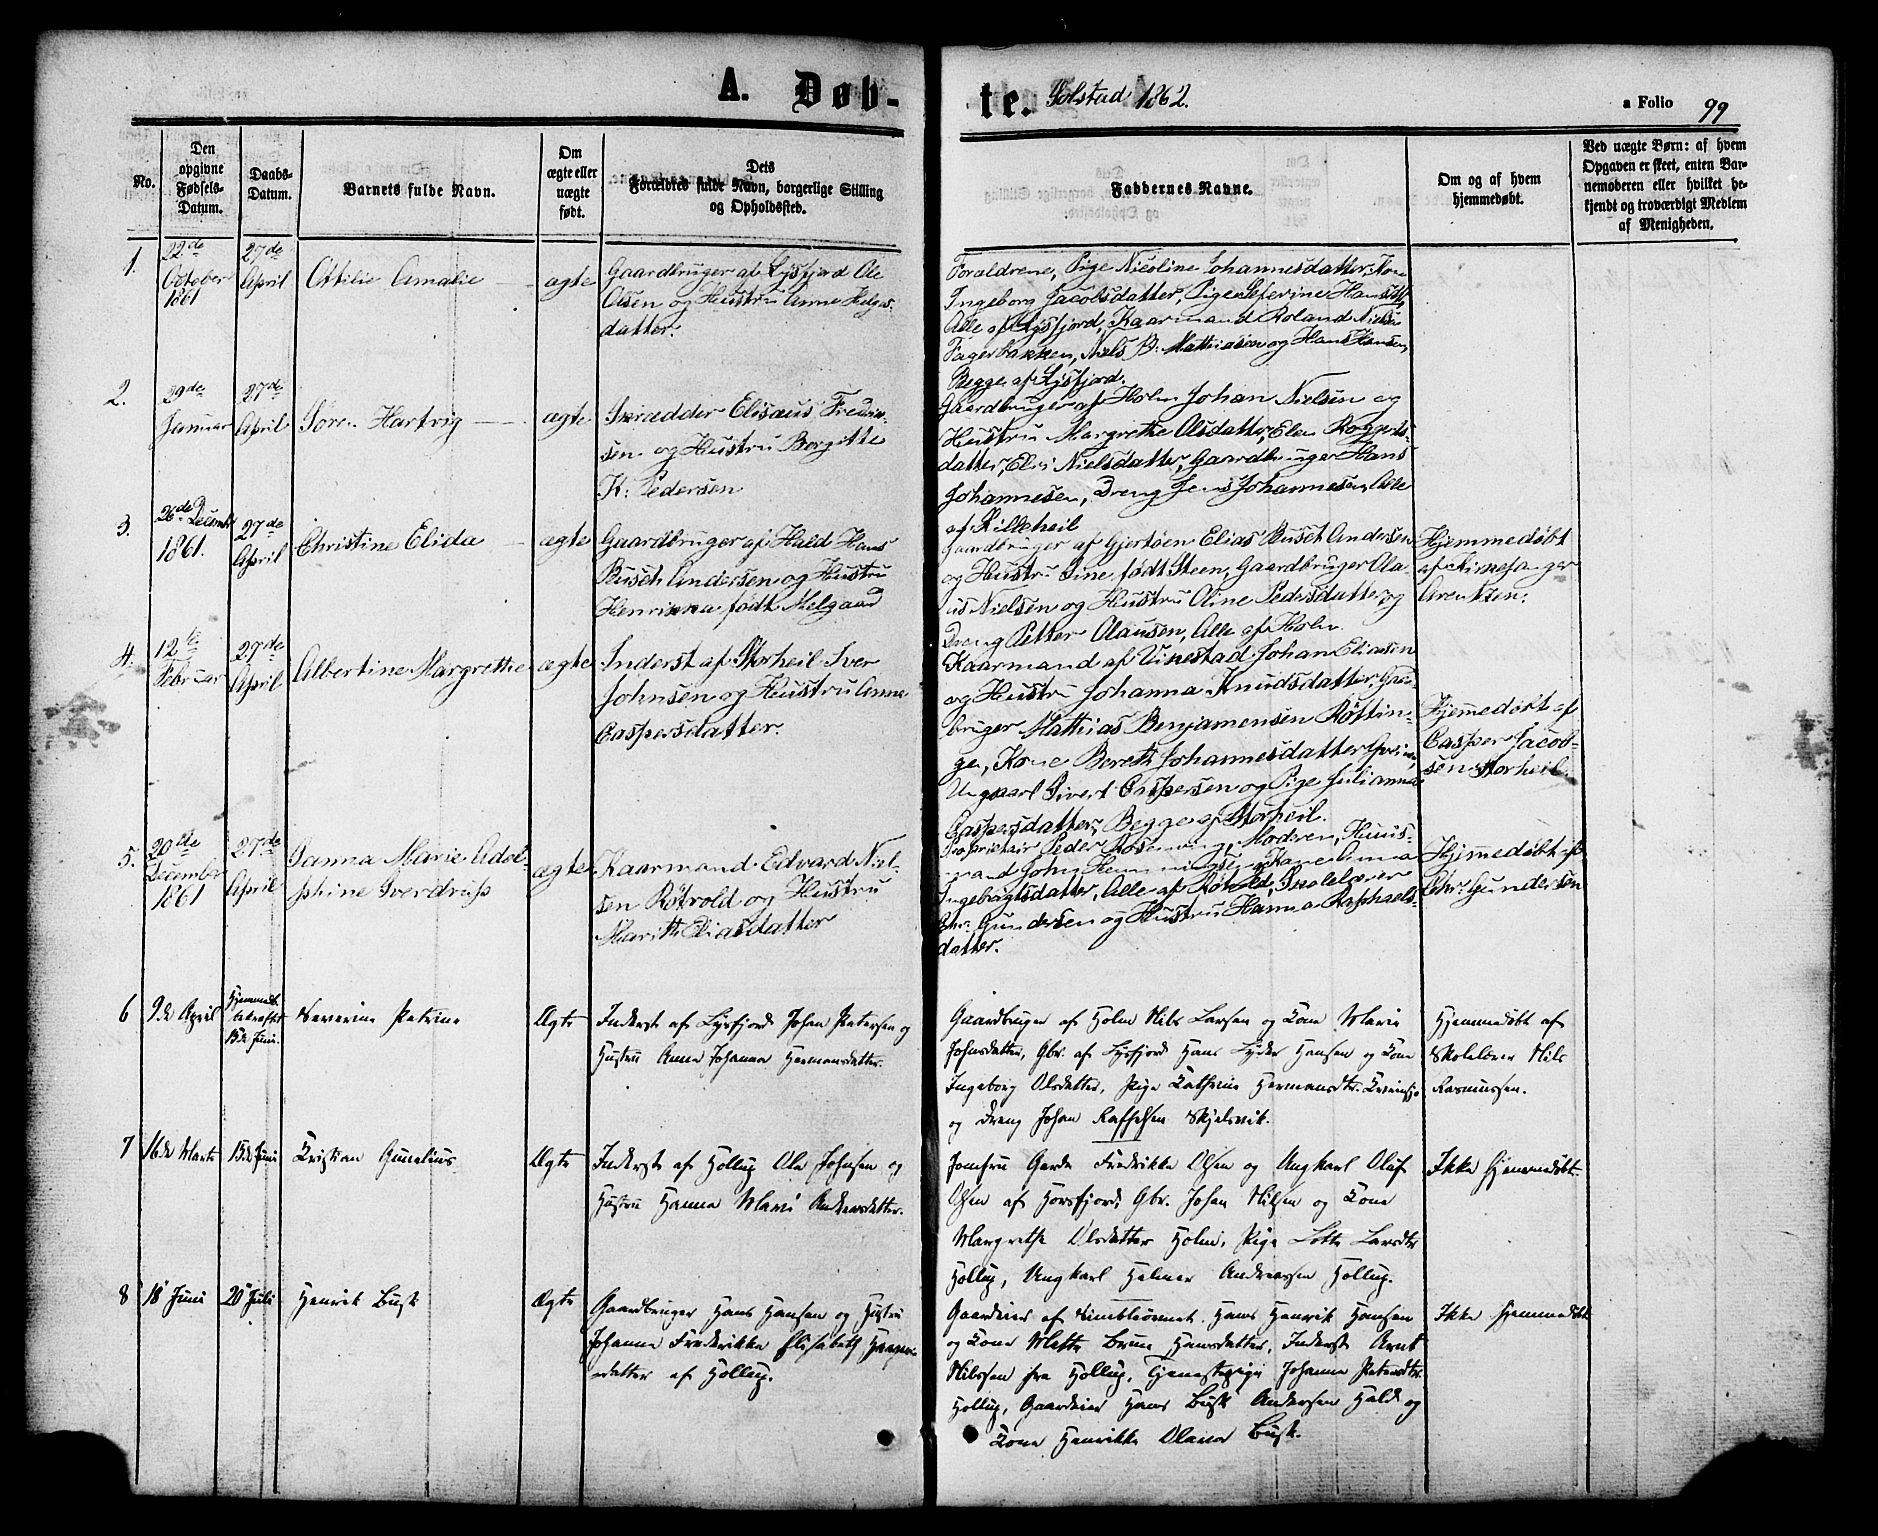 A. Døb-
te. Solstad 1862.
a Folio 99
No.
Den
opgivne
Fødsels-
Datum.
Daabs-
Datum.
Barnets fulde Navn.
Om
ægte eller
uægte
født.
Dets
Forældres fulde Navn, borgerlige Stilling
og Opholdssted.
Faddernes Navne.
Om og af hvem
hjemmedøbt.
Ved uægte Børn: af hvem
Opgaven er skeet, enten Bar-
nemoderen eller hvilket be-
kjendt og troværdigt Medlem
af Menigheden.
1.
22de
October
1861
27de
April
Ottilie Amalie
ægte
Gaardbruger af Lysfjord Ole
Olsen og Hustru Anne Helges-
datter.
Forældrene, Pige Nicoline Johannesdatter, Kone
Ingeborg Jacobsdatter, Pige Seferine Hansdtt,
Alle af Lysfjord, Kaarmand Roland Nielsen
Fagerbakken, Niels B. Mathiasen og Hans Hansen,
Begge af Lysfjord.
2.
29de
Januar
27de
April
Søren Hartvig
ægte
Skrædder Elisæus Fredrik-
sen og Hustru Borgitte
K: Pedersen
Gaardbruger af Holm Johan Nielsen og
Hustru Margrethe Olsdatter, Elen Roggerts-
datter, Elen Nielsdatter, Gaardbruger Hans
Johannesen, Dreng Jens Johannesen, Alle
af Killeheil
3.
26de Decemb
1861.
27de
April
Christine Elida
ægte
Gaardbruger af Hald Hans
Busch Andersen og Hustru
Henrikka født Melgaard
Gaardbruger af Gjertøen Elias Buset Andersen
og Hustru Sine født Steen, Gaardbruger Ola-
us Nielsen og Hustru Oline Pedersdatter og
Dreng Petter Olausen, Alle af Holm.
Hjemmedøbt
af Kirkesanger
Arentzen.
4.
12te
Februar
27de
April
Albertine Margrethe
ægte
Inderst af Storheil Iver
Johnsen og Hustru Anne
Caspersdatter.
Kaarmand af Vinestad Johan Eliasen
og Hustru Johanna Knudsdatter, Gaard-
bruger Mathias Benjamensen Røttin-
gen, Kone Bereth Johannesdatter
Ungkarl Sivert Caspersen og Pige Julianna
Caspersdatter, Begge af Storheil.
Hjemmedøbt af
Casper Jacob-
sen Storheil
5.
20de
December
1861
27de
April
Sanna Marie Adol-
phine Sverdrup
ægte
Kaarmand Edvard Niel-
sen Røtvold og Hustru
Marith Eliasdatter
Proprietair Peder Rosenving, Moderen, Huus-
mand John Henningsen og Kone Anna
Ingebrigtsdatter, Alle af Røtvold, Skolelærer
Chr. Gundersen og Hustru Hanna Raphaels-
datter.
Hjemedøbt af
Chr. Gundersen
6
9de April
Hjemmed.
bekræftet
15de Juni.
Severine Petrine
Ægte
Inderst af Lysfjord Johan Petersen og
Hustru Anne Johanna Hermansdatter.
Gaardbruger af Holm Nils Larsen og Kone Marie
Johnsdatter, Gbr. af Lysfjord Hans Lyder Hansen og Kone
Ingeborg Olsdatter, Pige Kathrine Hermansdtr.
og Dreng Johan Raffelsen Skjelsvik.
Hjemmedøbt af
Skolelærer Nils
Rasmussen.
7
16de Marts
15de Juni
Kristian Gunelius
Ægte
Inderst af Hollup Ole Johnsen og
Hustru Hanna Marie Andreasdatter.
Jomfru Garda Fredrikke Olsen og Ungkarl Oluf
Olsen af Horsfjord, Gbr. Johan Nilsen og Kone
Margrethe Olsdatter Holm, Pige Lotte Larsdtr
Hollup, Ungkarl Helmer Andreassen Hollup.
Ikke hjemmedøbt.
8
18 Juni
20 Juli
Henrik Busk
Ægte
Gaardbruger Hans Hansen og Hustru
Johanna Fredrikke Elisabeth
datter af Hollup.
Gaardeier af Simbleømet Hans Henrik Hansen
og Kone Mette Bruun Hansdatter, Inderst Arnt
Nilssen fra Hollup, Tjenestepige Johanna Petersdtr.
Hollup, Gaardeier Hans Busk Andersen Hald og
Kone Henrikke Olava Busk.
Ikke hjemmedøbt